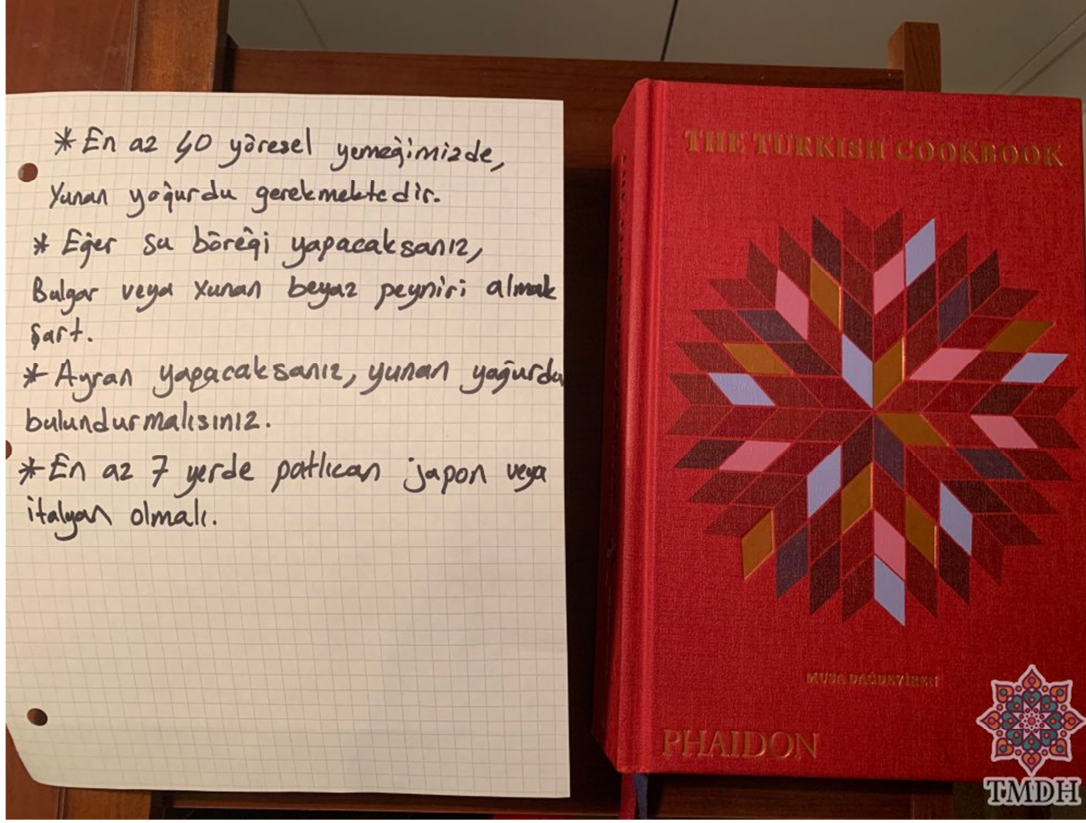 * En az 40 yöresel yemeğimizde,
Yunan yoğurdu gerekmektedir.
* Eğer su böreği yapacaksanız,
Bulgar veya Yunan beyaz peyniri almak
şart.
* Ayran yapacaksanız, yunan yoğurdu
bulundurmalısınız.
* En az 7 yerde patlıcan japon veya
italyan olmalı.
THE TURKISH COOKBOOK
MUSA DAĞDEVİREN
PHAIDON
TMDH